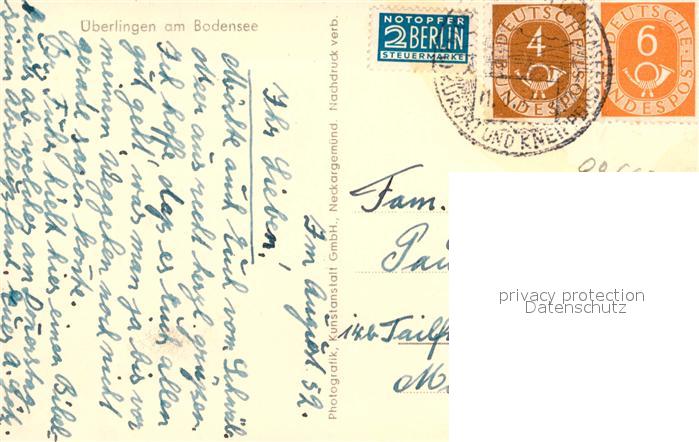 Überlingen am Bodensee
NOTOPFER
2 BERLIN
STEUERMARKE
DEUTSCHE
4
BUNDESPOST
DEUTSCHE
6
BUNDESPOST
KURORT UND KNEIPP
Im August 52.
Ihr Lieben!
Möchte auch Euch vom Schwäb.
Meer aus recht herzl. grüßen.
Ich hoffe, daß es Euch allen
gut geht, was man ja bis vor
meinem Weggehen noch nicht
gerade sagen konnte.
hielt hier einen
ab, welcher am Donerstag
seinen Abschluß fand.
Photografik, Kunstanstalt GmbH., Neckargemünd. Nachdruck verb.
Fam.
privacy protection
Datenschutz